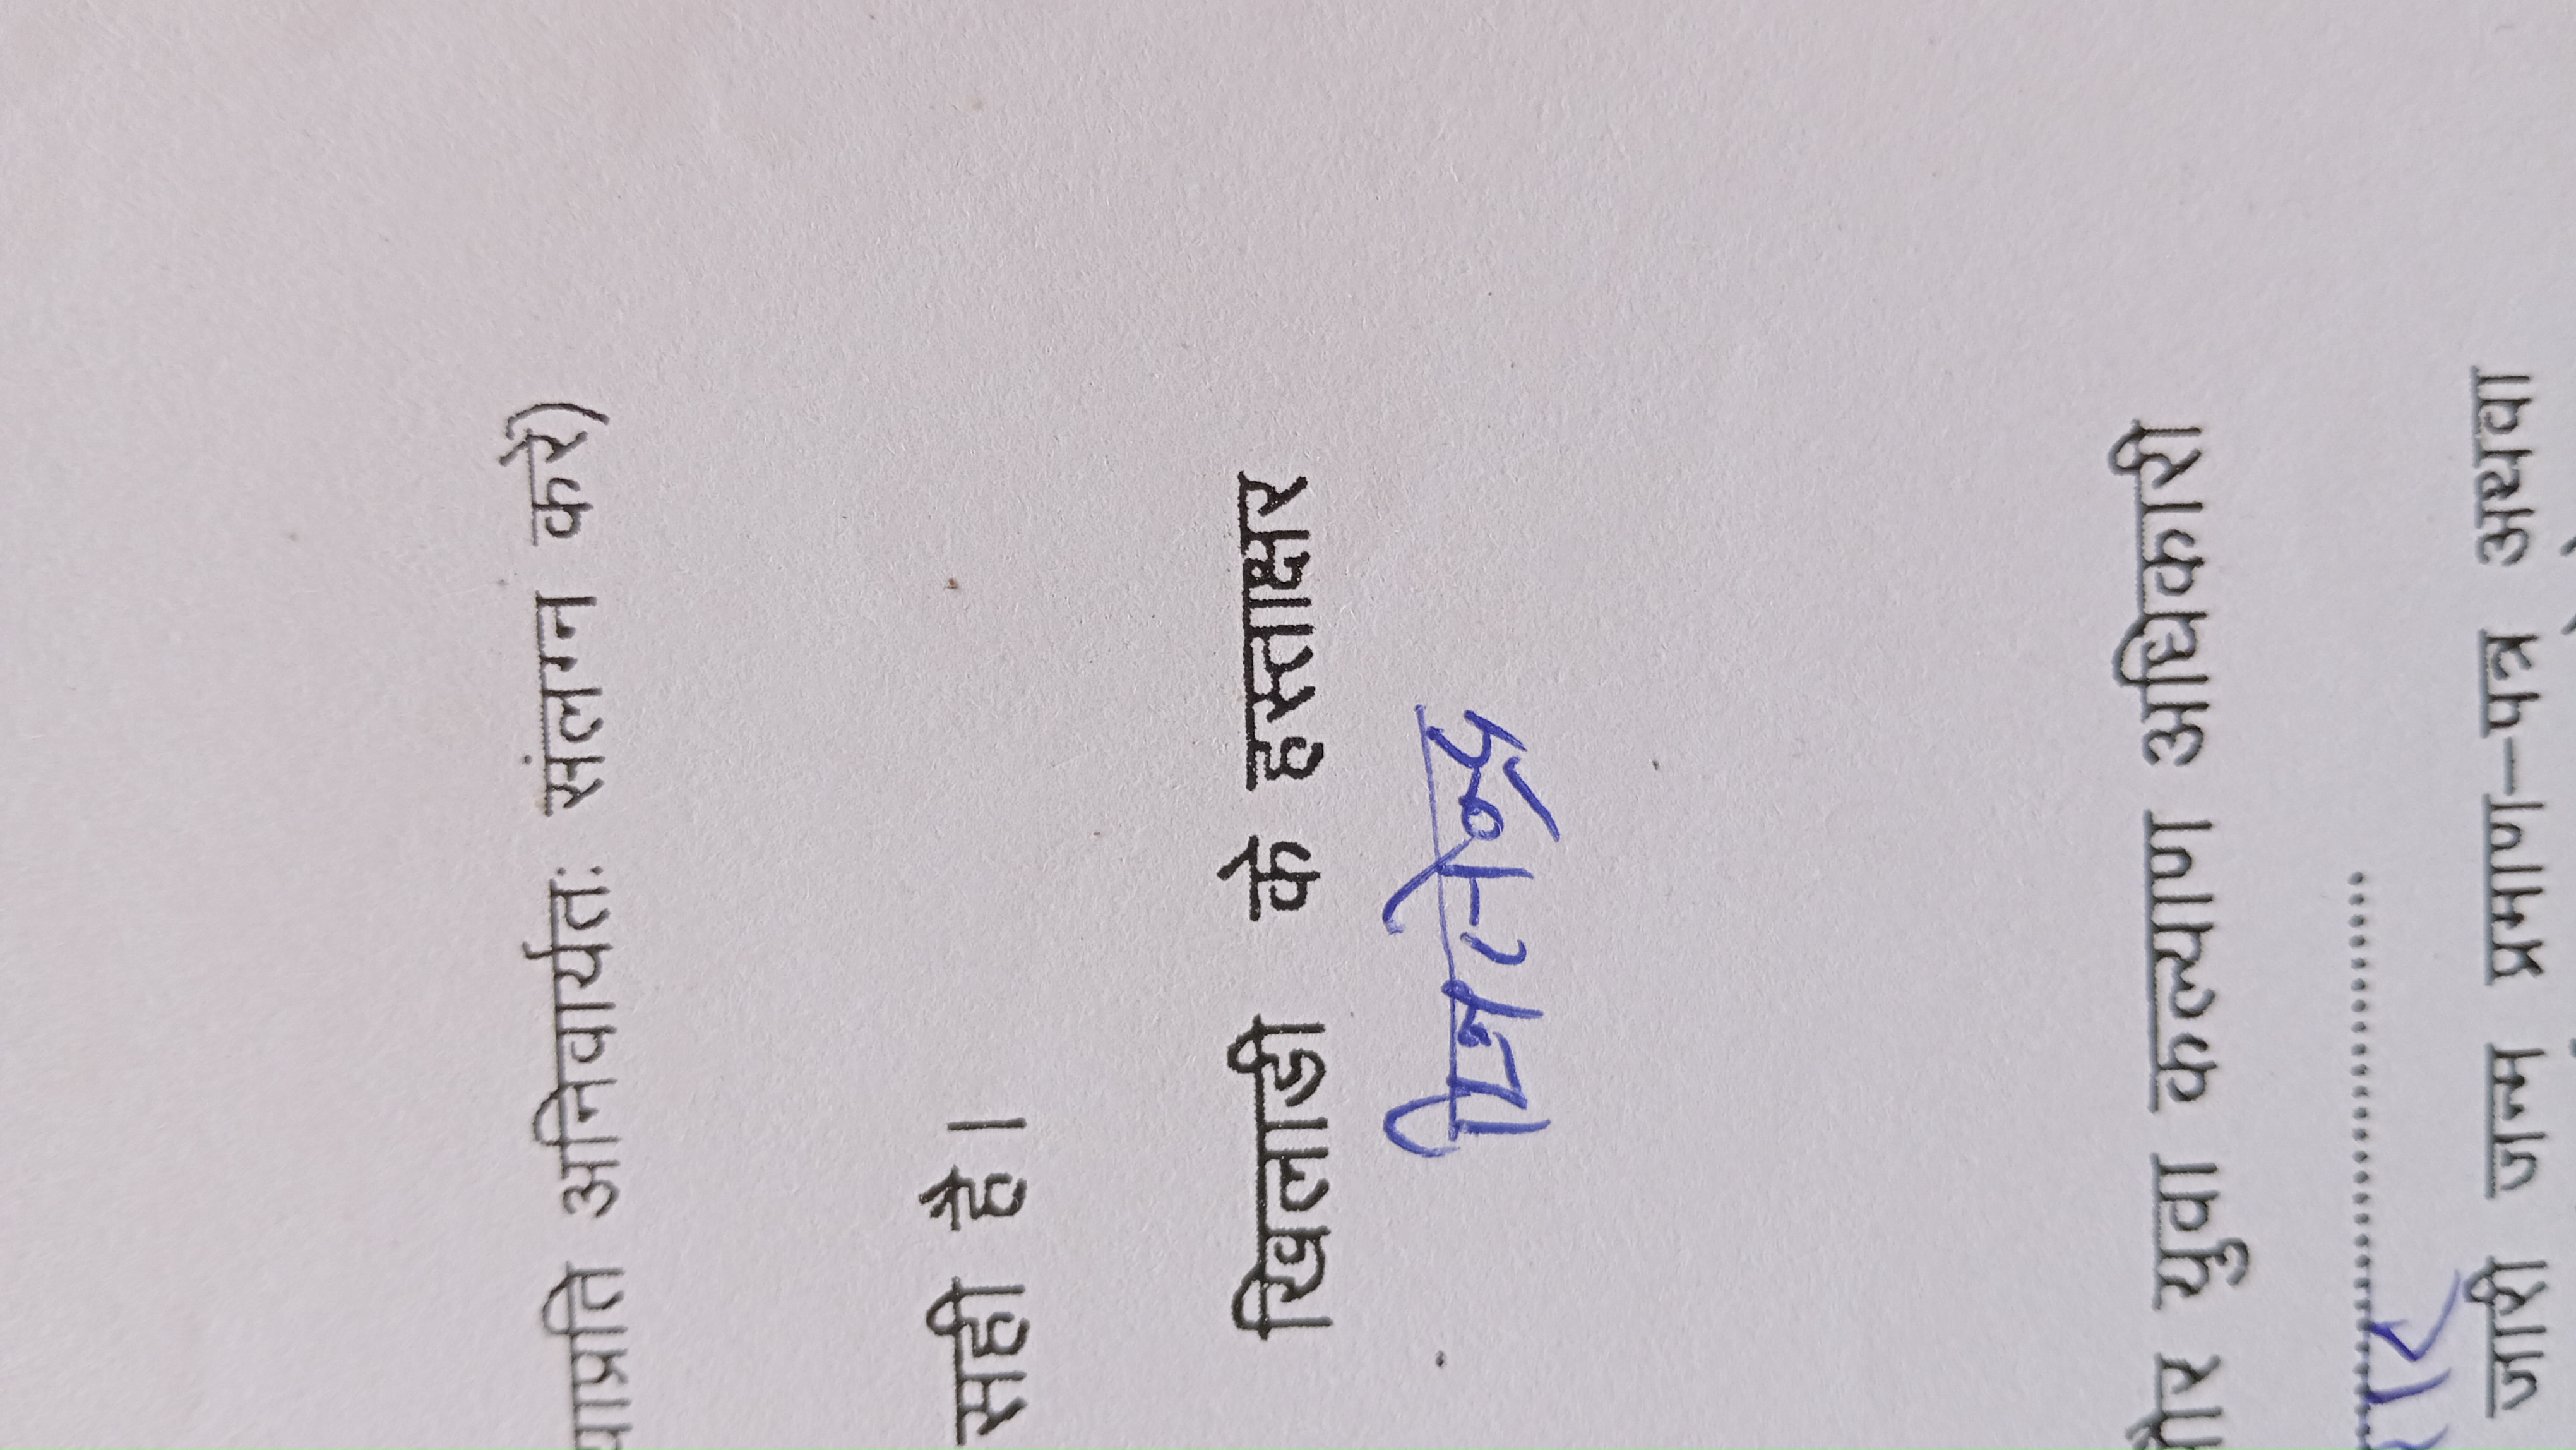 याप्रति अनिवार्यतः संलग्न करे)
सही है।
खिलाडी के हस्ताक्षर
युवा कल्याण अधिकारी
....................
जारी जन्म प्रमाण–पत्र अथवा